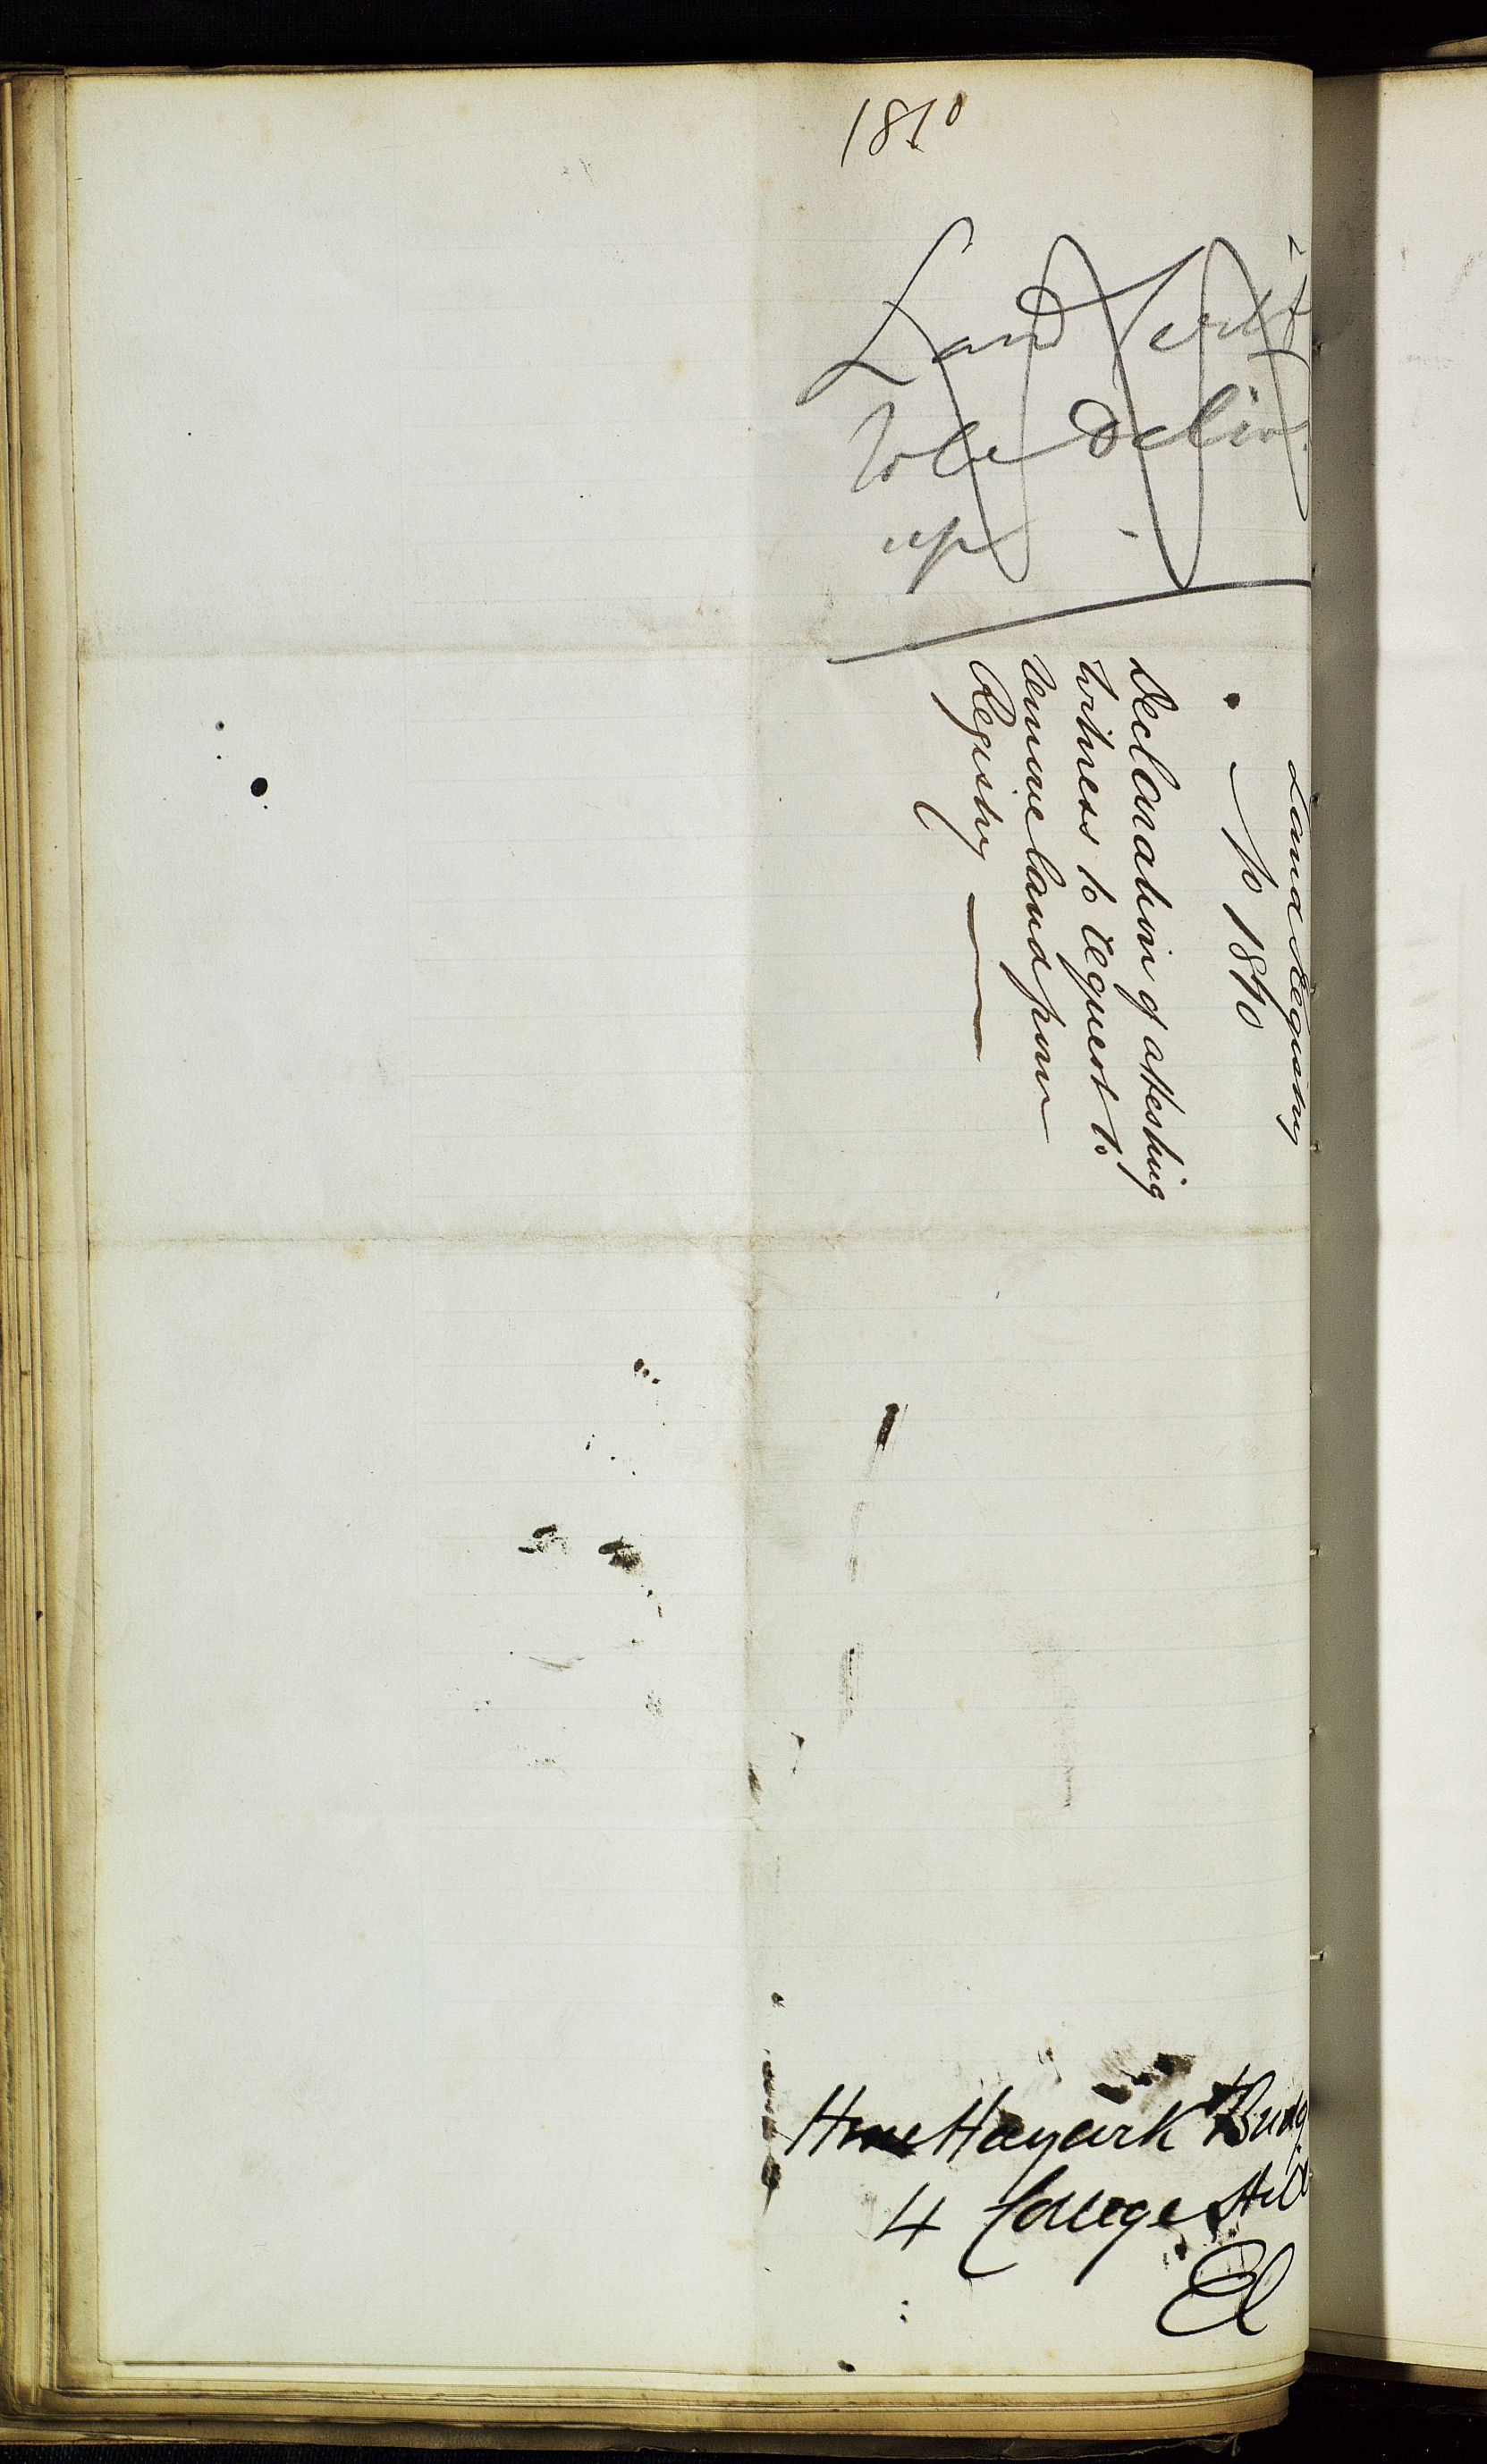 1810
Land Certif
to be deliv.
up
Land Registry
No 1810
Declaration of attesting
witness to request to
remove land from
Registry
Haycock
4 College Hill
EC